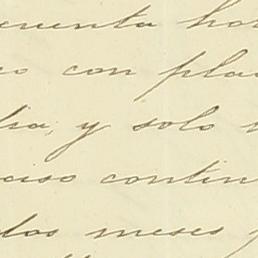 cuenta ho
o con pla
y solo
aiso contin
dos meses